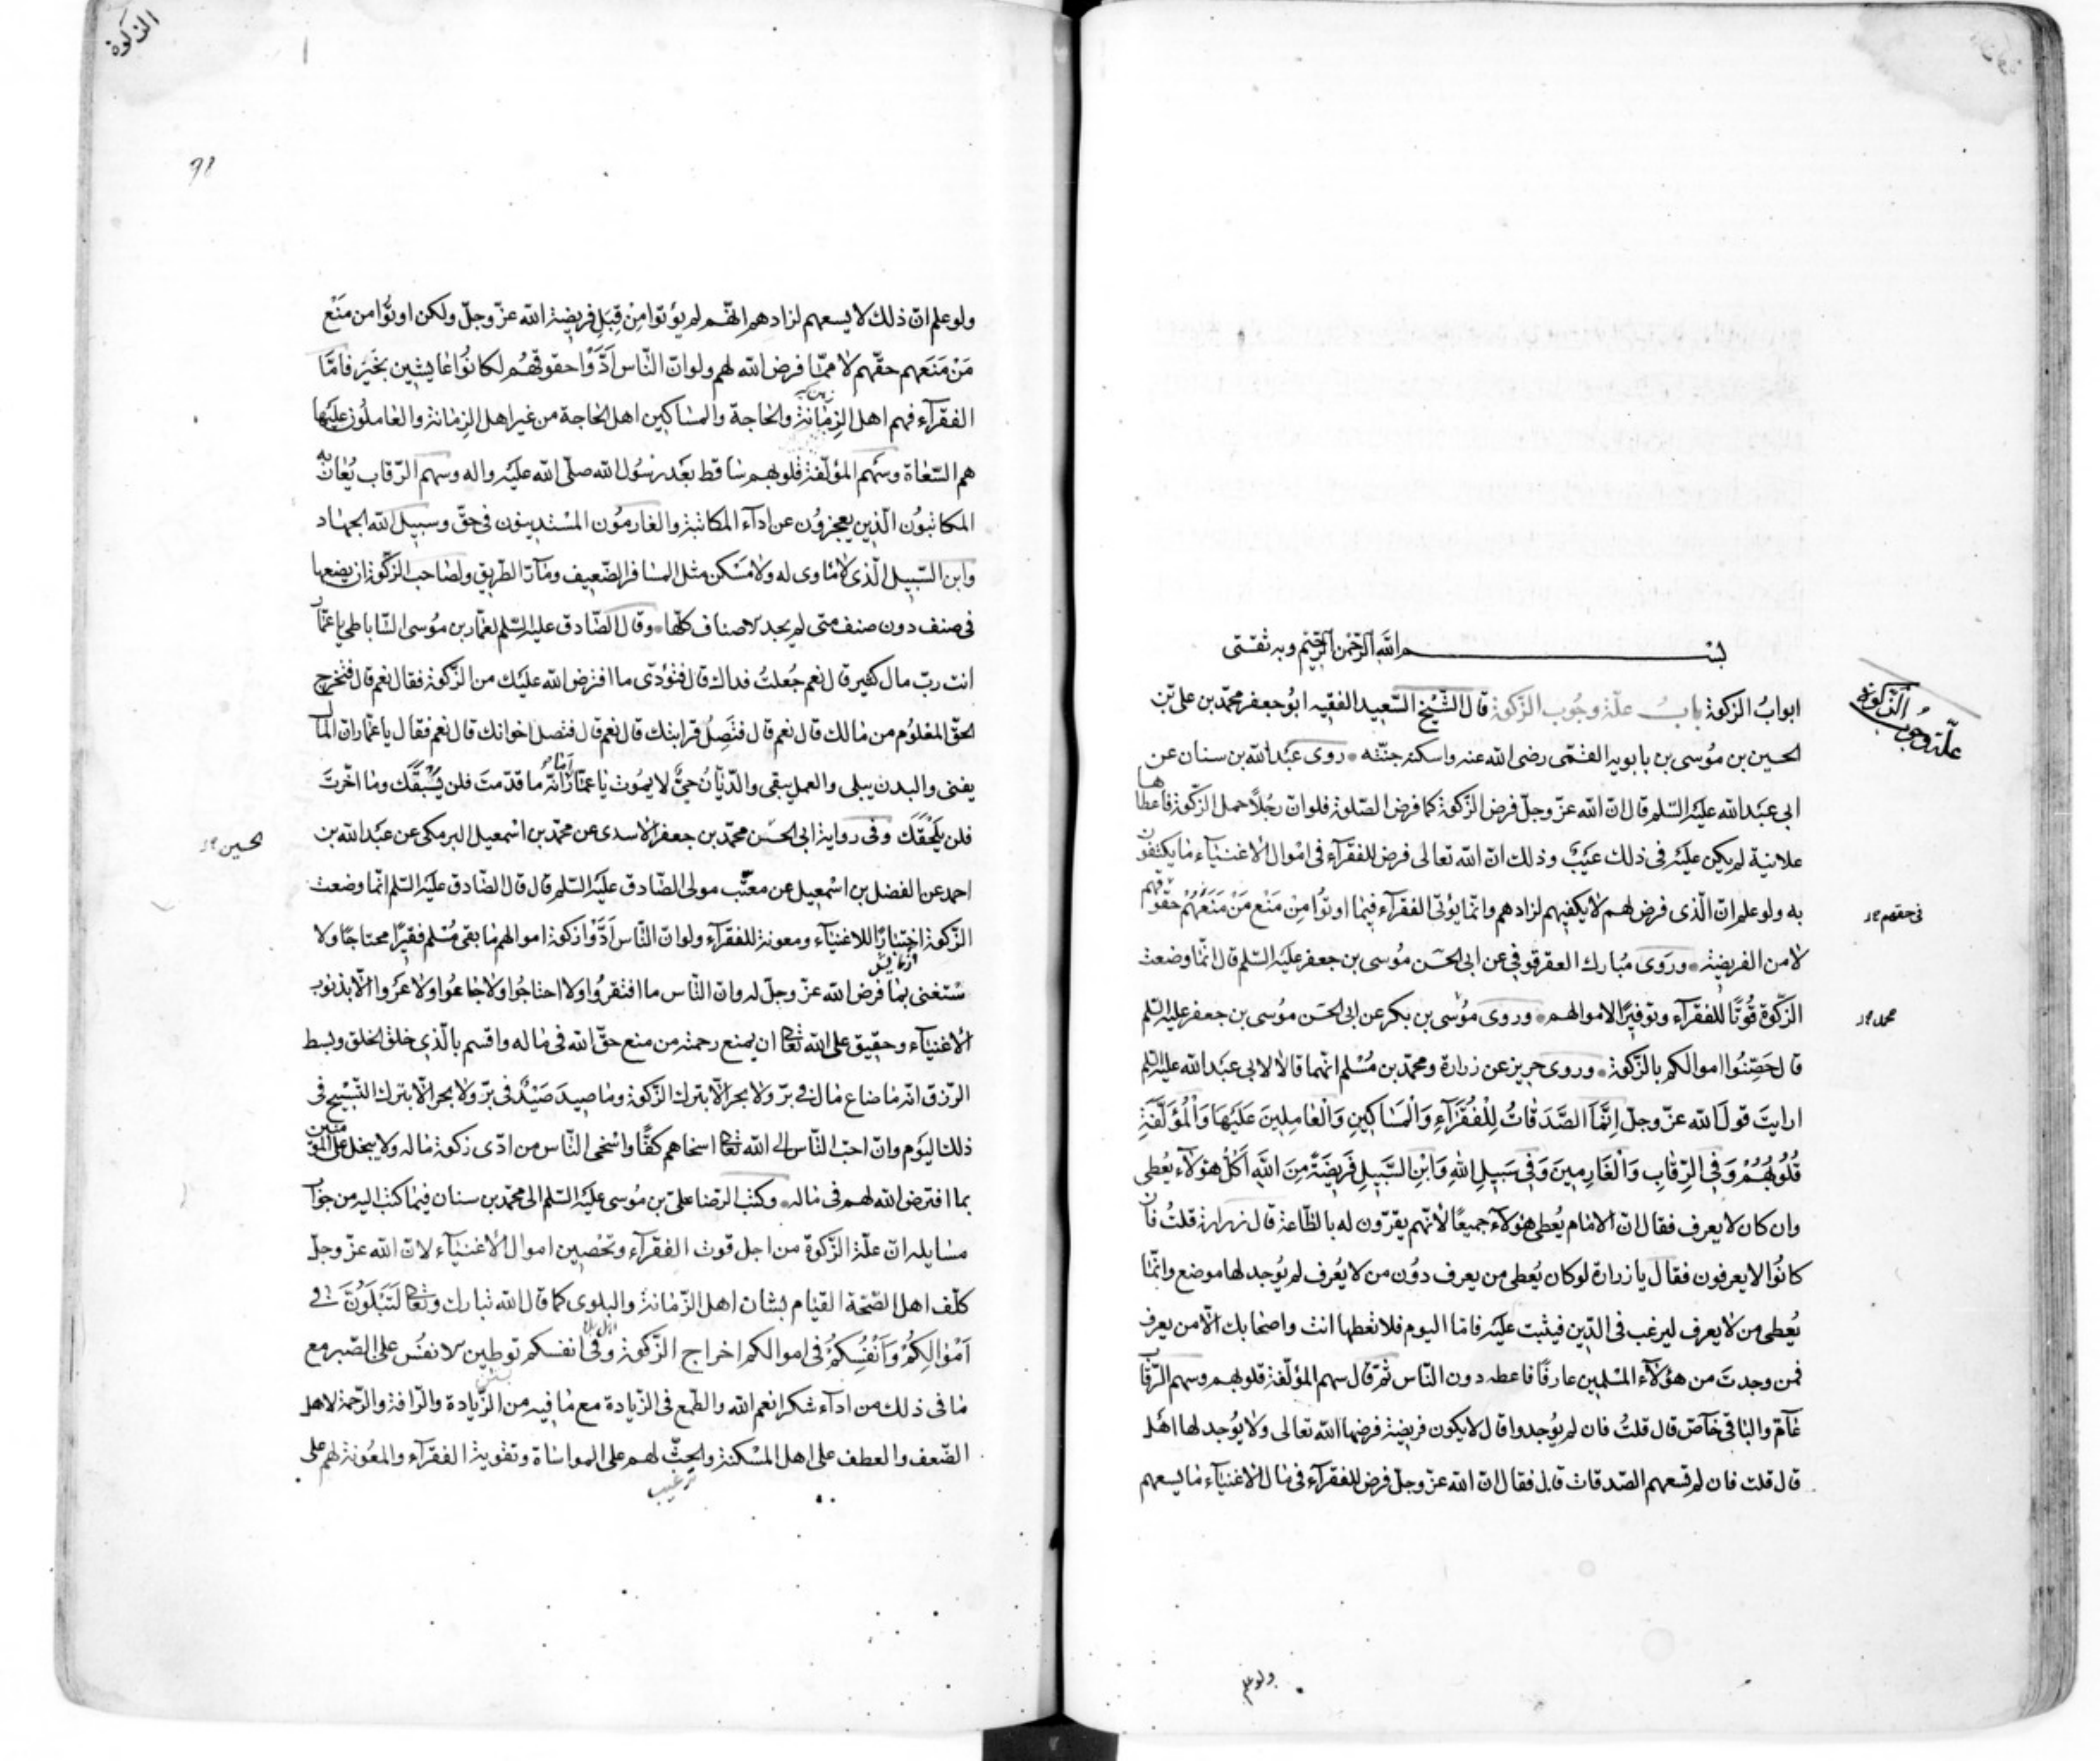 بسم الله الرحمن الرحیم وبه ثقتی
ابوابُ الزکوة بابُ علّة وجُوب الزّکوة قال الشّیخ السّعید الفقیه ابوُجعفر محمّد بن علی بن
الحسین بن مُوسی بن بابویه القمّی رضی الله عنه واسکنه جنّته روی عبَدالله بن سنان عن
ابی عبَدالله علیَه السّلم قال انّ الله عزّ وجلّ فرض الزّکوة کما فرض الصّلوة فلوانّ رجُلاً حمل الزّکوة فاعطاها
علانیة لم یکن علیَه فی ذلك عیَبٌ وذلك انّ الله تعالی فرض للفقرآء فی امْوال الاغنیآء ما یکتفون
به ولو علم انّ الّذی فرض لهم لا یکفیهم لزادهم وانّما یؤتی الفقرآء فیما اوتوُا مِنْ مَنْع مَنْ مَنَعَهُمْ حقوقهم
لا من الفریضة وروی مُبارك العقرقوفی عن ابی الحسَن مُوسی بن جعفر علیَه السّلم قال انّما وضعت
الزّکوة قُوتًا للفقرآء وتوفیرًا لاموالهم وروی موُسی بن بکر عن ابی الحسَن مُوسی بن جعفر علیه السّلم
قال حَصِّنُوا اموالکم بالزّکوة وروی حریز عن زرارة ومحمّد بن مُسْلم انّهما قالا لابی عبَدالله علیه السّلم
ارایتَ قولَ الله عزّ وجلّ اِنَّمَا الصَّدَقاتُ لِلْفُقَرَآءِ وَالْمَسَاکِینِ وَالْعامِلِینَ عَلَیْهَا وَالْمُؤَلَّفَةِ
قُلُوبُهُمْ وَفِی الرِّقابِ وَالْغَارِمِینَ وَفِی سَبِیلِ اللهِ وَابْنِ السَّبِیلِ فَرِیضَةً مِنَ اللهِ اَکُلُّ هؤلآء یُعطی
وان کان لا یعرف فقال انّ الامام یُعطی هؤلآء جمیعًا لانّهم یقرّون له بالطّاعة قال زرارة قلتُ فان
کانوُا لا یعرفون فقال یا زرارة لو کان یُعطی من یعرف دوُن من لا یُعرف لم یُوجد لها موضع وانّما
یُعطی من لا یعرف لیرغب فی الدّین فیثبت علیَه فامّا الیوم فلا تعطها انت واصحابك الّا من یعرف
فمن وجدتَ من هؤلآء المسْلمین عارفًا فاعطه دون النّاس ثمّ قال سهم المؤلّفة قلوبهم وسهم الرّقاب
عامّ والباقی خاصّ قال قلتُ فان لم یُوجدوا قال لا یکون فریضة فرضها الله تعالی ولا یُوجد لها اهل
قال قلت فان لم تسعهم الصّدقات قال فقال انّ الله عزّ وجلّ فرض للفقرآء فی مال الاغنیآء ما یسعهم
ولو علم
علّة وجُوب الزّکوة
فی حقهم
محمد
الزکوة
ولو علم انّ ذلك لا یسعهم لزادهم انّهم لم یؤتوا مِنْ قِبَلِ فریضة الله عزّ وجلّ ولکن اوتُوا من مَنْع
مَنْ مَنَعَهم حقّهم لا ممّا فرض الله لهم ولو انّ النّاس اَدَّوْا حقوقهُم لکانوُا عایشین بخَیر فامّا
الفقرآء فهم اهل الزِمانة والحاجة والمساکین اهل الحاجة من غیر اهل الزمانة والعاملُون علیَها
هم السّعاة وسَهم المؤلّفة قلوبهم ساقط بعَد رسُول الله صلّی الله علیَه واله وسهم الرّقاب یُعان به
المکاتبوُن الّذین یعجزوُن عن ادآء المکاتبة والغارموُن المسْتدینون فی حقّ وسبیل الله الجهاد
وابن السّبیل الّذی لا ماوی له ولا مسَکن مثل المسافر الضّعیف ومآرّ الطّریق ولصاحب الزّکوة ان یضعها
فی صنف دون صنف متی لم یجد الاصناف کلّها وقال الصّادق علیه السّلم لعمّار بن مُوسی السّاباطی یا عمّار
انت ربّ مال کثیر قال نعم جُعلتُ فداك قال فتؤدّی ما افترض الله علیَك من الزّکوة فقال نعم قال فتخرج
الحقّ المعْلوُم من مالك قال نعم قال فتَصِلُ قرابتك قال نعم قال فتصل اخوانك قال نعم فقال یا عمّار انّ المال
یفنی والبدن یبلی والعمل یبقی والدّیّان حیٌّ لا یموُت یا عمّار اَما انّه ما قدّمتَ فلن یَسْبقك وما اخّرتَ
فلن یَلحقَك وفی روایة ابی الحسَن محمّد بن جعفر الاسدی عن محمّد بن اسْمعیل البرمکی عن عبَدالله بن
احمد عن الفضل بن اسْمعیل عن معتّب مولی الصّادق علیَه السّلم قال قال الصّادق علیَه السّلم انّما وضعت
الزّکوة اختبارًا للاغنیآء ومعونة للفقرآء ولو انّ النّاس اَدَّوْا زکوة اموالهم ما بقی مُسْلم فقیرًا محتاجًا ولا
ستغنی بما فرض الله عزّ وجلّ له وان النّاس ما افتقرُوا ولا احتاجُوا ولا جاعوُا ولا عَرُوا الّا بذنوب
الاغنیآء وحقیق علی الله تعالی ان یمنع رحمته من منع حقّ الله فی ماله واقسم بالّذی خلق الخلق وبسط
الرّزق انّه ما ضاع مال فی برّ ولا بحر الّا بترك الزّکوة وما صِیدَ صَیْدٌ فی برّ ولا بحر الّا بترك التّسْبیح فی
ذلك الیَوم وانّ احبّ النّاس الی الله تعالی اسخاهم کفًّا واسْخی النّاس من ادّی زکوة ماله ولا یبخل علی المؤمنین
بما افترض الله لهم فی ماله وکتب الرّضا علیّ بن موُسی علیَه السّلم الی محمّد بن سنان فیما کتب الیه من جواب
مسایله انّ علّة الزّکوة من اجل قوت الفقرآء وتحْصین اموال الاغنیآء لانّ الله عزّ وجلّ
کلّف اهل الصّحّة القیام بشان اهل الزّمانة والبلوی کما قال الله تبارك وتعالی لَتُبْلَوُنَّ فی
اَمْوالِکُمْ وَاَنْفُسِکُمْ فی اموالکم اخراج الزّکوة وفی انفسکم توطین الانفُس علی الصّبر مع
ما فی ذلك من ادآء شکر انعم الله والطّمع فی الزّیادة مع ما فیه من الزّیادة والرّافة والرّحمة لاهل
الضّعف والعطف علی اهل المسْکنة والحثّ لهم علی المواساة وتقویة الفقرآء والمعُونة لهم علی
ترغیب
الحسین